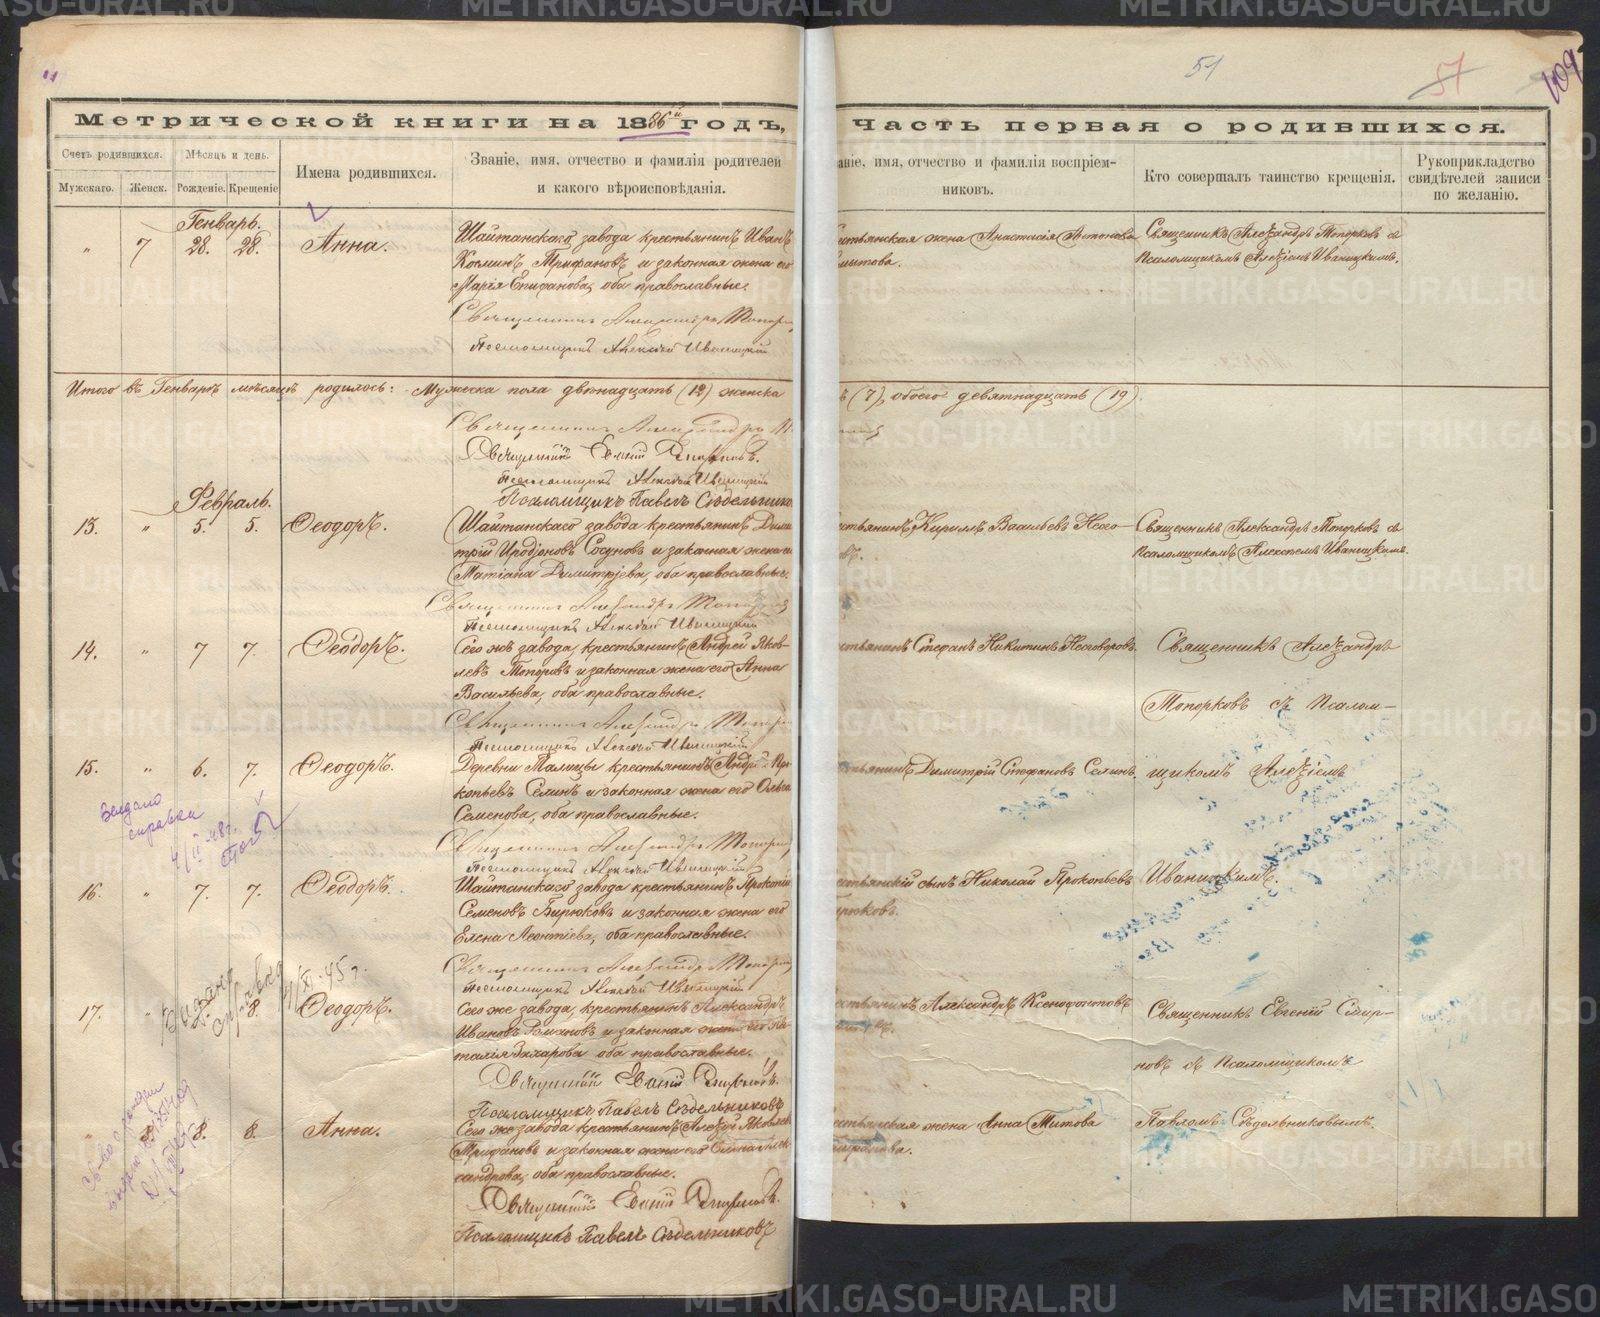 51
57
109
Метрической книги на 1886й годъ,
Часть первая о родившихся.
Счетъ родившихся.
Мѣсяцъ и день.
Имена родившихся.
Званіе, имя, отчество и фамилія родителей
и какого вѣроисповѣданія.
Мужскаго.
Женск.
Рожденіе.
Крещеніе
аніе, имя, отчество и фамилія воспріем-
никовъ.
Кто совершалъ таинство крещенія.
Рукоприкладство
свидѣтелей записи
по желанію.
Генварь.
" 7 28. 28. Анна.
Шайтанскаго завода крестьянинъ Иванъ
Косминъ Трифановъ и законная жена его
Марія Епифанова, оба православные.
Священникъ Александръ Топорк
Псаломщикъ Алексѣй Иваницкій
стьянская жена Анастасія Антонова
Священникъ Алеѯандръ Топорковъ съ
Псаломщикомъ Алеѯіемъ Иваницкимъ.
Итого въ Генварѣ мѣсяцѣ родилось: Мужеска пола двѣнадцать (12) женска
ь (7), обоего девятнадцать (19).
Священникъ Александръ
Священникъ Евгеній Смирновъ.
Псаломщикъ Алексѣй Иваницкій
Псаломщикъ Павелъ Сѣдельнико
Февраль.
13. " 5. 5. Ѳеодоръ.
Шайтанскаго завода крестьянинъ Дими
трій Иродіоновъ Сосуновъ и законная жена его
Татіана Димитріева, оба православные.
Священникъ Александръ Топорк
Псаломщикъ Алексѣй Иваницкій
стьянинъ Кириллъ Васильевъ Него-
въ.
Священникъ Александръ Топорковъ съ
Псаломщикомъ Алексѣемъ Иваницкимъ.
14. " 7 7. Ѳеодоръ.
Сего же завода крестьянинъ Андрей Яков-
левъ Топорковъ и законная жена его Анна
Васильева, оба православные.
Священникъ Александръ Топорк
Псаломщикъ Алексѣй Иваницкій
стьянинъ Стефанъ Никитинъ Неговоровъ.
Священникъ Алеѯандръ
Топорковъ съ Псалом-
15. " 6. 7. Ѳеодоръ.
Деревни Талицы крестьянинъ Андрей Про-
копьевъ Селинъ и законная жена его Ольга
Семенова, оба православные.
Священникъ Александръ Топорк
Псаломщикъ Алексѣй Иваницкій
стьянинъ Димитрій Стефановъ Селинъ.
щикомъ Алеѯіемъ
справки
16. " 7. 7. Ѳеодоръ.
Шайтанскаго завода крестьянинъ Прокопій
Семеновъ Бирюковъ и законная жена его
Елена Леонтіева, оба православные.
Священникъ Александръ Топорк
Псаломщикъ Алексѣй Иваницкій
стьянскій сынъ Николай Прокопьевъ
ирюковъ.
Иваницкимъ.
Выдана
справка
XI-45 г.
17. " 8. Ѳеодоръ.
Сего же завода крестьянинъ Александръ
Ивановъ Романовъ и законная жена его На-
талія Захарова оба православные.
Священникъ Евгеній Смирновъ.
Псаломщикъ Павелъ Сѣдельниковъ
стьянинъ Александръ Ксенофонтовъ
Священникъ Евгеній Смир-
новъ съ Псаломщикомъ
" 8. 8. 8. Анна.
Сего же завода крестьянинъ Алеѯѣй Яковлевъ
Трифановъ и законная жена его Елена Алек
сандрова, оба православные.
Священникъ Евгеній Смирновъ.
Псаломщикъ Павелъ Сѣдельниковъ
стьянская жена Анна Титова
Павломъ Сѣдельниковымъ.
METRIKI.GASO-URAL.RU